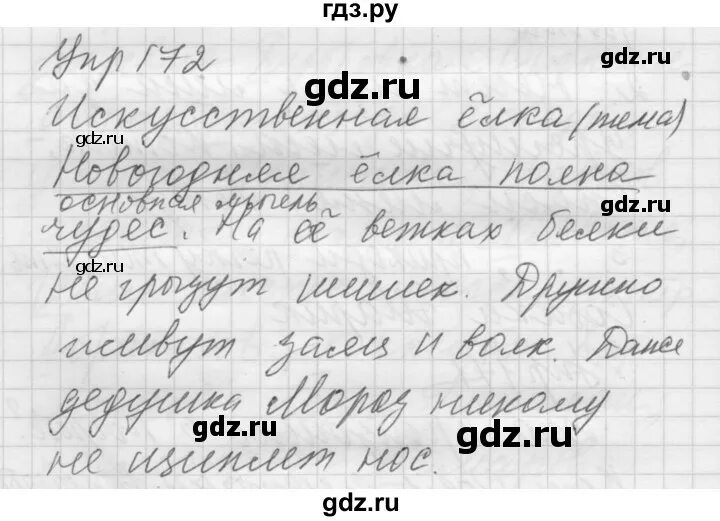 гдз.ру
Упр 172
gdz.ru
gdz.ru
Искусственная ёлка (тема)
gdz.ru
Новогодняя ёлка полна
основная мысль
gdz.ru
чудес. На её ветках белки
не грызут шишек. Дружно
gdz.ru
gdz.ru
живут заяц и волк. Даже
дедушка Мороз никому
gdz.ru
gdz.ru
не щиплет нос.
gdz.ru